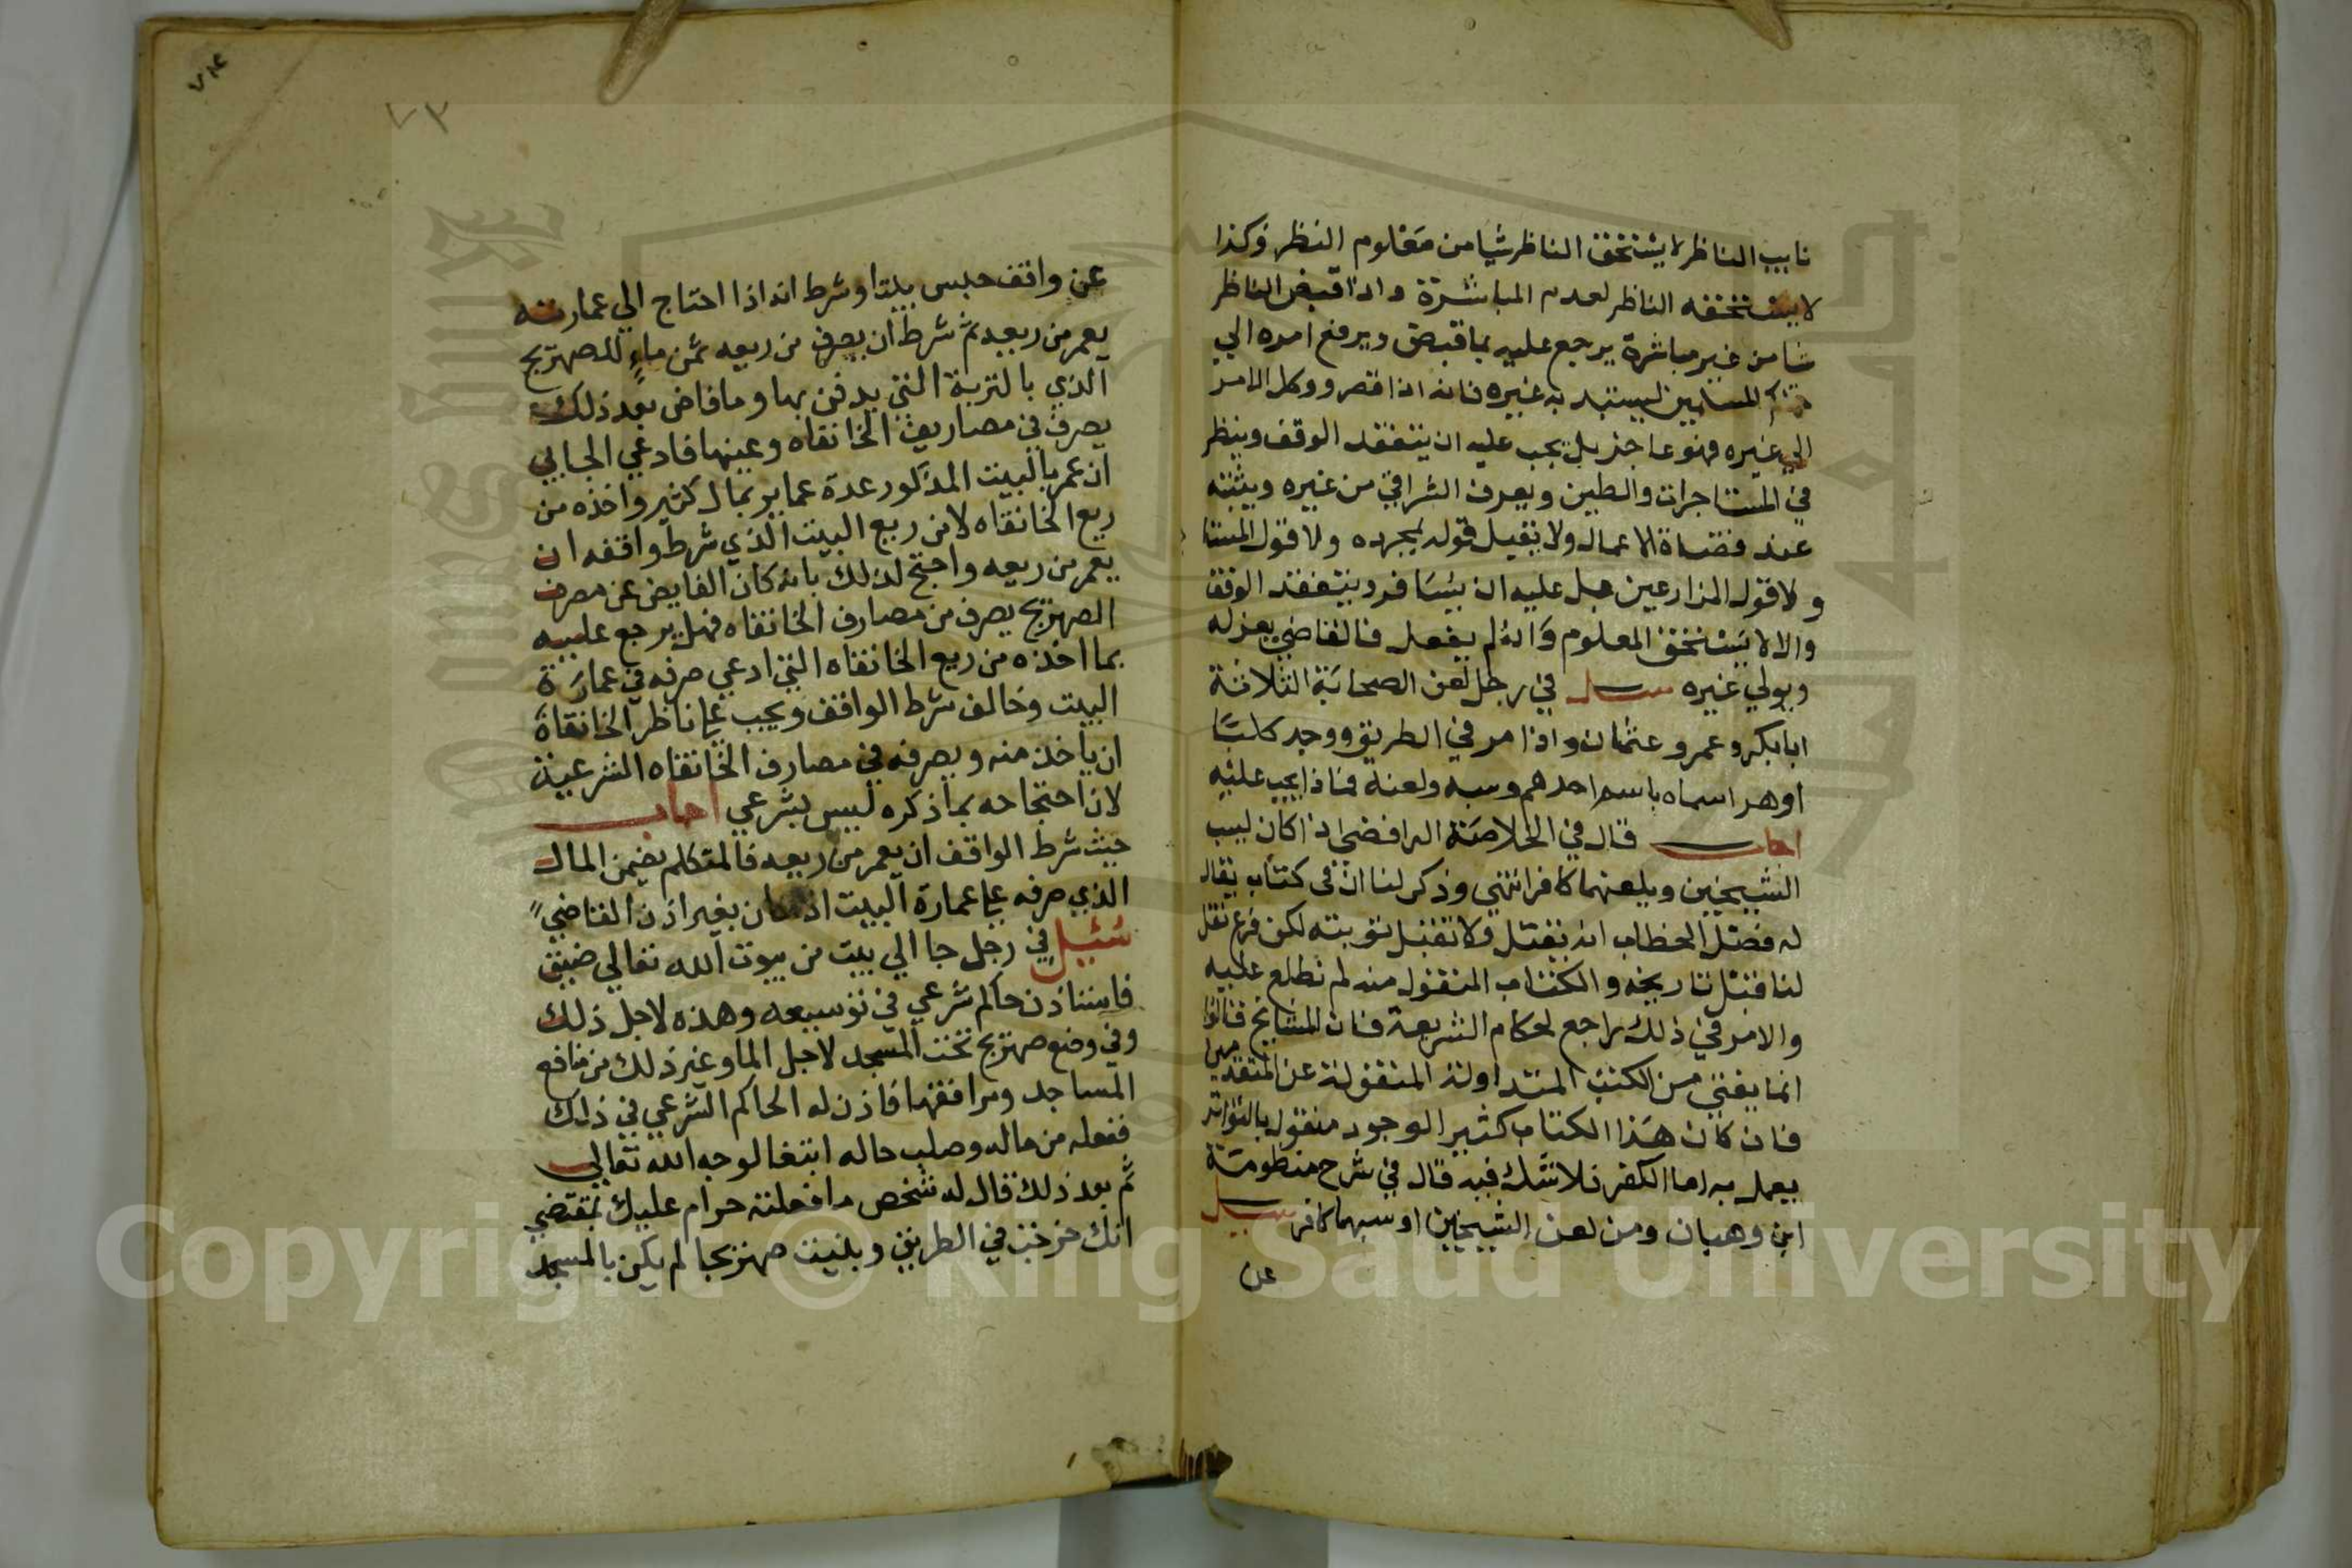 نايب الناظر لا يستحق الناظر شيا من معلوم النظر وكذا
لا يستحقه الناظر لعدم المباشرة واذا قبض الناظر
شا من غير مباشرة يرجع عليه بما قبض ويرفع امره الي
المسلمين ليستبد به غيره فانه اذا قصر ووكل الامر
الي غيره فهو عاجز بل يجب عليه ان يتفقد الوقف وينظر
في المستاجرات والطين ويعرف الشراقي من غيره ويثبته
عند قضاة الاعمال ولا يقبل قوله بمجرده ولا قول المستا
ولا قول المزارعين بل عليه ان يسافر ويتفقد الوقف
والا لا يستحق المعلوم وان لم يفعل فالقاضي يعزله
ويولي غيره سيل في رجل لعن الصحابة الثلاثة
ابا بكر وعمر وعثمان واذا مر في الطريق ووجد كلبا
او هر اسماه باسم احدهم وسبه ولعنه فماذا يجب عليه
اجاب قال في الخلاصة الرافضي اذا كان يسب
الشيخين ويلعنهما كافر انتهي وذكر لنا ان في كتاب يقال
له فصل الخطاب انه يقتل ولا تقبل توبته لكن فرع نقل
لنا قتل تاريخه والكتاب المنقول منه لم نطلع عليه
والامر في ذلك راجع لحكام الشريعة فان المشايخ قالوا
انما يفتي من الكتب المتداولة المنقولة عن المتقدمين
فان كان هذا الكتاب كثير الوجود منقول بالتواتر
يعمل به اما الكفر فلا شك فيه قال في شرح منظومة
ابن وهبان ومن لعن الشيخين او سبهما كافر سيل
عن
٧٣
عن واقف حبس بيتا وشرط انه اذا احتاج الي عمارته
يعمر من ريعه ثم شرط ان يصرف من ريعه ثمن ماء للصهريج
الذي بالتربة التي يدفن بها وما فاض بعد ذلك
يصرف في مصاريف الخانقاه وعينها فادعي الجابي
ان عمر بالبيت المذكور عدة عماير بمال كثير واخذه من
ريع الخانقاه لا من ريع البيت الذي شرط واقفه ان
يعمر من ريعه واحتج لذلك بانه كان الفايض عن مصرف
الصهريج يصرف من مصارف الخانقاه فهل يرجع عليه
بما اخذه من ريع الخانقاه التي ادعي صرفه في عمارة
البيت وخالف شرط الواقف ويجب علي ناظر الخانقاة
ان ياخذ منه ويصرفه في مصارف الخانقاه الشرعية
لان احتجاجه بما ذكره ليس بشرعي اجاب
حيث شرط الواقف ان يعمر من ريعه فالمتكلم يضمن المال
الذي صرفه علي عمارة البيت اذ كان بغير اذن القاضي
سئيل في رجل جا الي بيت من بيوت الله تعالي ضيق
فاستاذن حاكم شرعي في توسيعه وهذه لاجل ذلك
وفي وضع صهريج تحت المسجد لاجل الما وغير ذلك من منافع
المساجد ومرافقها فاذن له الحاكم الشرعي في ذلك
ففعله من ماله وصلب حاله ابتغا لوجه الله تعالي
ثم بعد ذلك قال له شخص ما فعلته حرام عليك بمقتضي
انك خرجت في الطريق وبنيت صهريجا لم يكن بالمسجد
Copyright © King Saud University